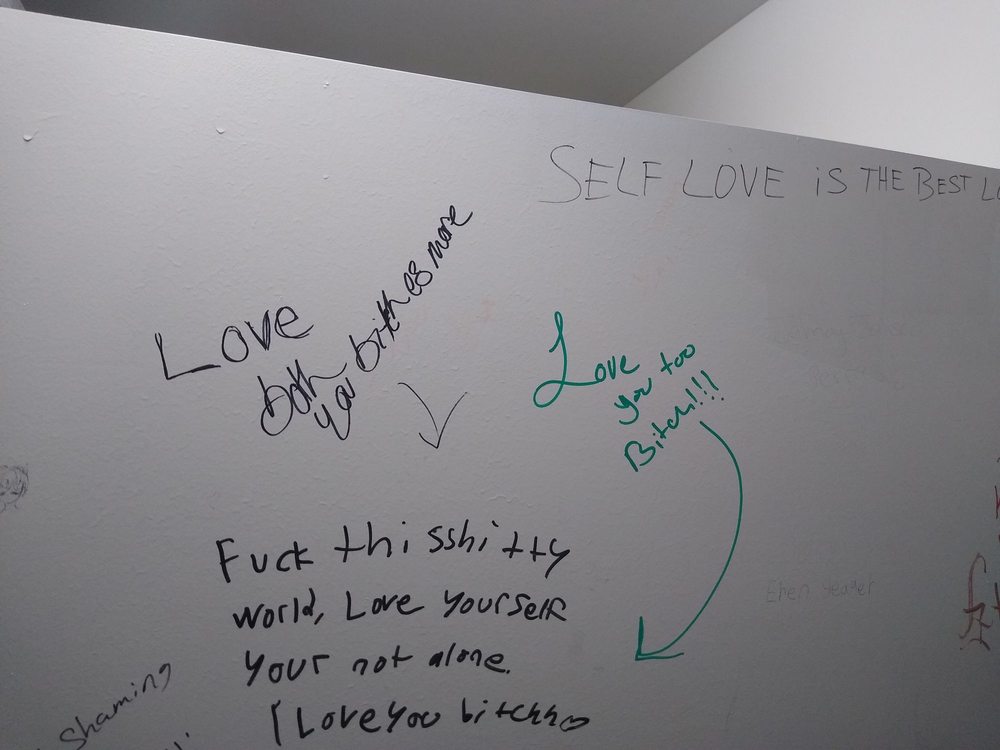 SELF LOVE iS THE BEST
Love
both
you bitches more
Love
you too
Bitch!!!
Fuck this shitty
world, Love yourself
your not alone.
I Love you bitchh
Eren Yeager
Shaming